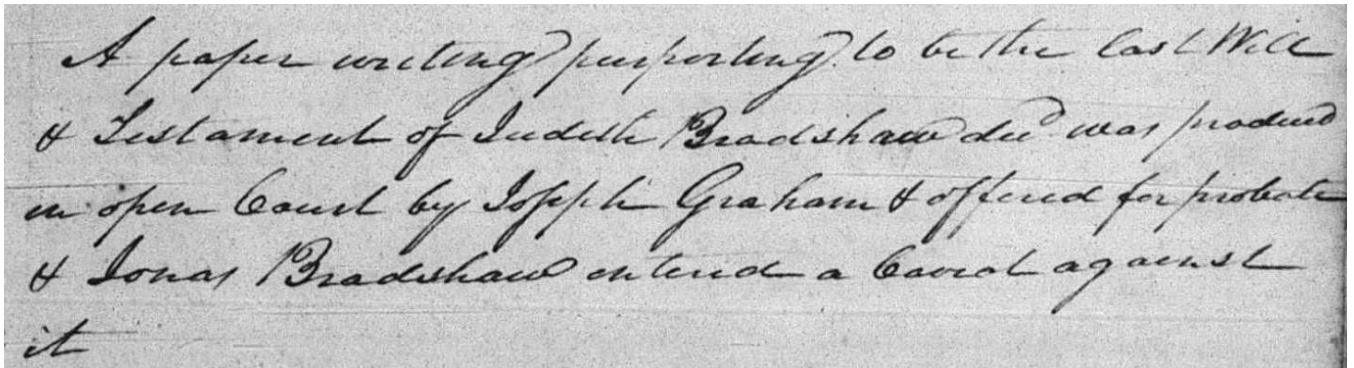 A paper writing purporting to be the last Will
& Testament of Judith Bradshaw decd was produced
in open Court by Joseph Graham & offered for probate
& Jonas Bradshaw entered a Caveat against
it